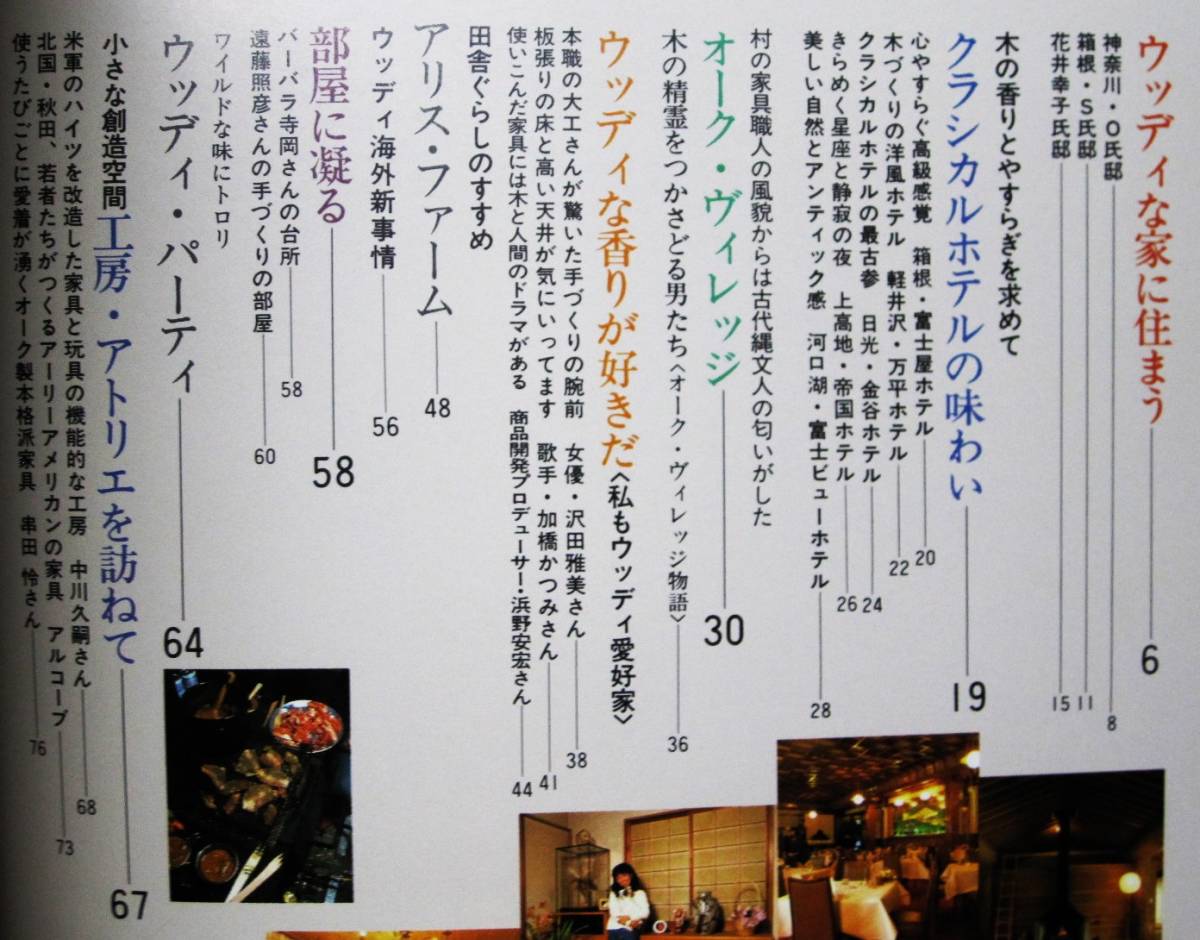 ウッディな家に住まう 6
神奈川・O氏邸 8
箱根・S氏邸 11
花井幸子氏邸 15
木の香りとやすらぎを求めて
クラシカルホテルの味わい 19
心やすらぐ高級感覚 箱根・富士屋ホテル 20
木づくりの洋風ホテル 軽井沢・万平ホテル 22
クラシカルホテルの最古参 日光・金谷ホテル 24
きらめく星座と静寂の夜 上高地・帝国ホテル 26
美しい自然とアンティック感 河口湖・富士ビューホテル 28
村の家具職人の風貌からは古代縄文人の匂いがした
オーク・ヴィレッジ 30
木の精霊をつかさどる男たち〈オーク・ヴィレッジ物語〉 36
ウッディな香りが好きだ〈私もウッディ愛好家〉
本職の大工さんが驚いた手づくりの腕前 女優・沢田雅美さん 38
板張りの床と高い天井が気にいってます 歌手・加橋かつみさん 41
使いこんだ家具には木と人間のドラマがある 商品開発プロデューサー・浜野安宏さん 44
田舎ぐらしのすすめ
アリス・ファーム 48
ウッディ海外新事情 56
部屋に凝る 58
バーバラ寺岡さんの台所 58
遠藤照彦さんの手づくりの部屋 60
ワイルドな味にトロリ
ウッディ・パーティ 64
小さな創造空間 工房・アトリエを訪ねて 67
米軍のハイツを改造した家具と玩具の機能的な工房 中川久嗣さん 68
北国・秋田、若者たちがつくるアーリーアメリカンの家具 アルコーブ 73
使うたびごとに愛着が湧くオーク製本格派家具 串田 怜さん 76